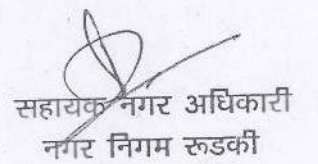 सहायक नगर अधिकारी
नगर निगम रूडकी